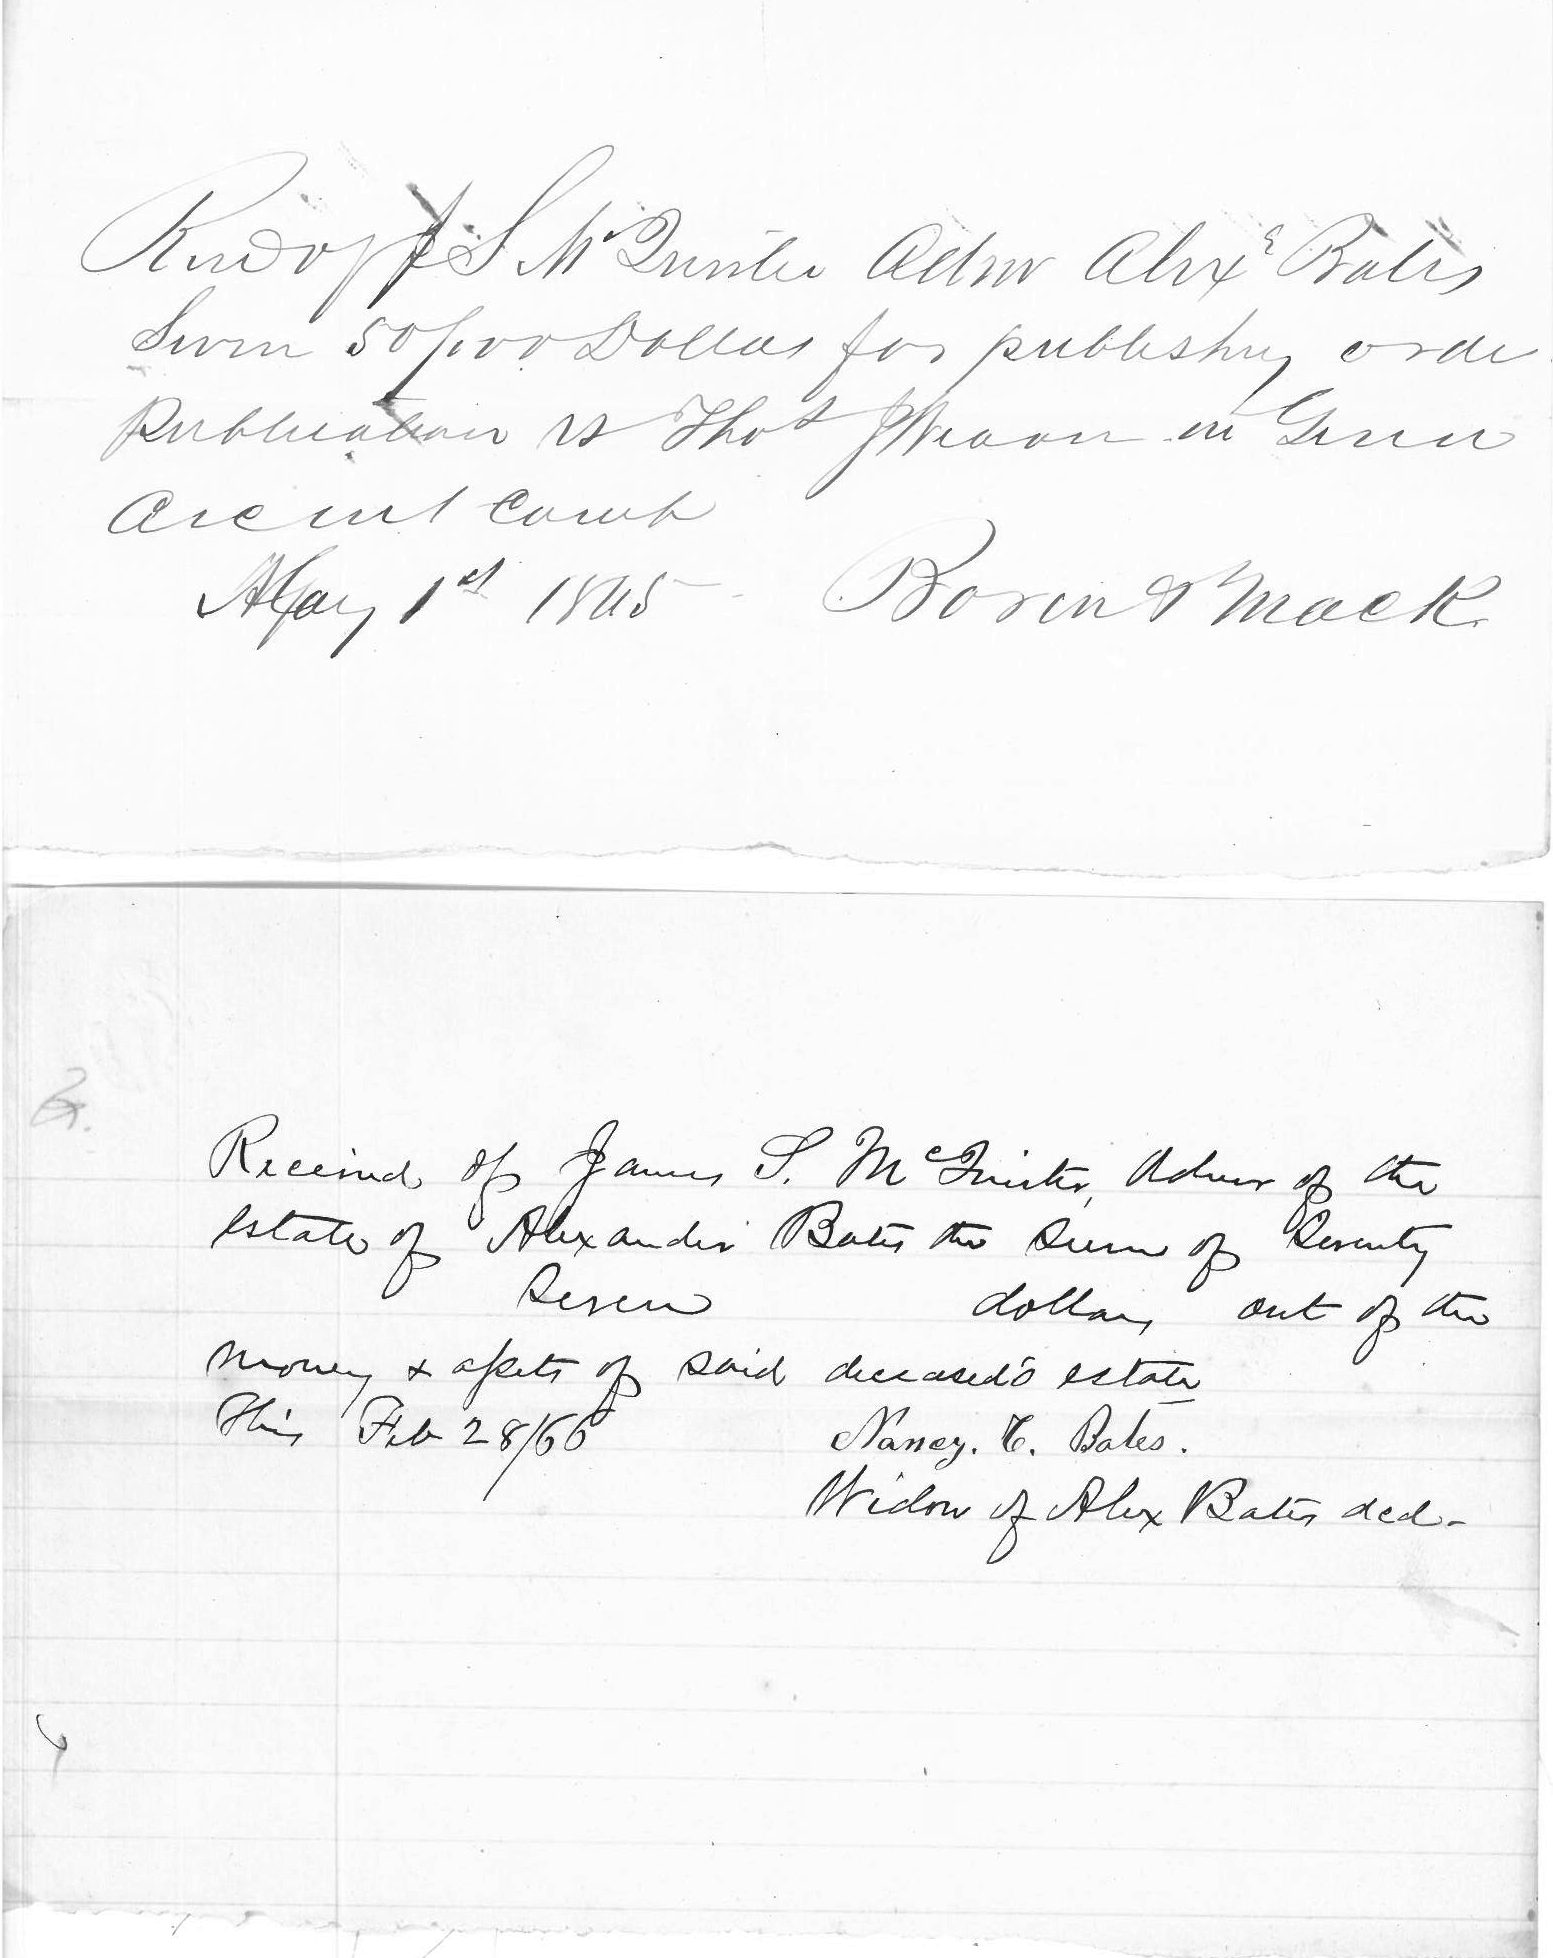 Recd of J S McQuister Admr Alexr Bates
Seven 50/100 Dollars for publishing order
Publication vs Thos J Weaver in Green
Circuit Court
May 1st 1865
Boren & Mack
Received of James S. McQuister, Admr of the
estate of Alexander Bates the sum of Seventy
Seven dollars out of the
money & assets of said deceased's estate
This Feb 28/66
Nancy. C. Bates.
Widow of Alex Bates decd-